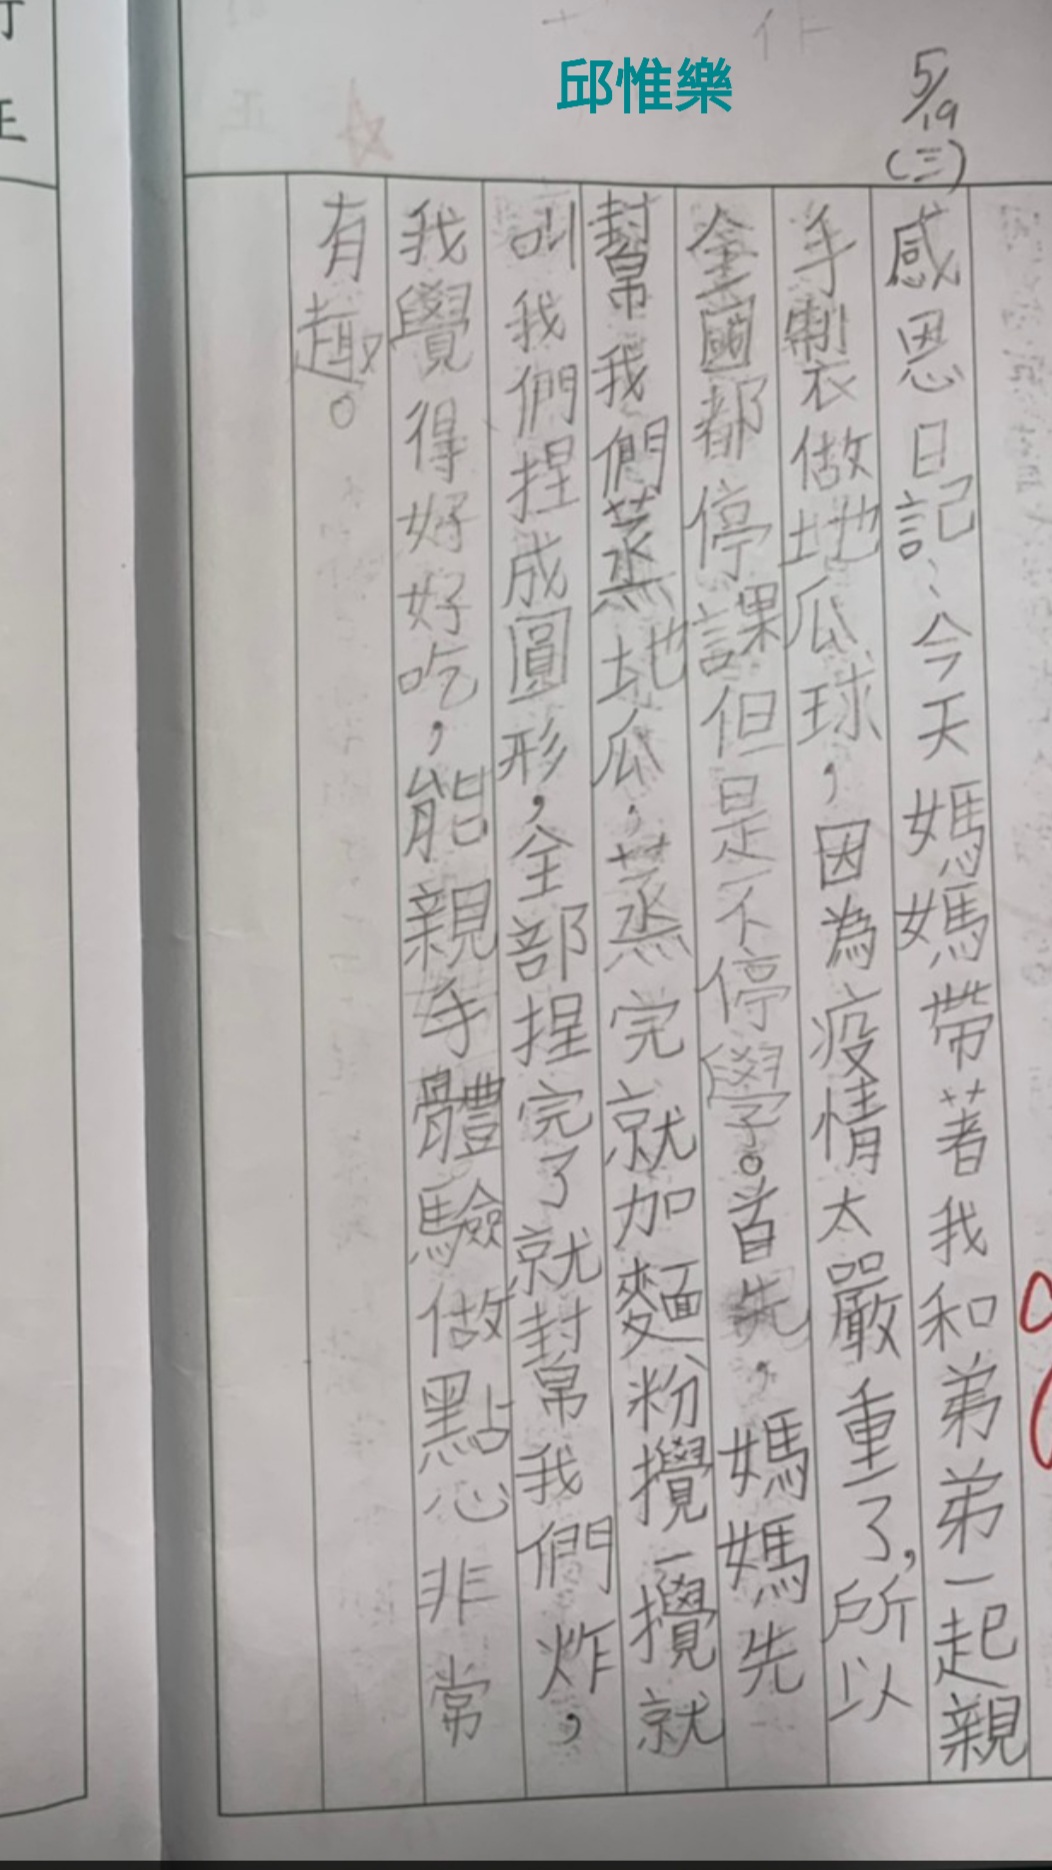 邱惟樂
5/19
(三)
感恩日記、今天媽媽帶著我和弟弟一起親
手製做地瓜球，因為疫情太嚴重了，所以
全國都停課但是不停學。首先，媽媽先
幫我們蒸地瓜，蒸完就加麵粉攪一攪就
叫我們捏成圓形，全部捏完了就幫我們炸，
我覺得好好吃，能親手體驗做點心非常
有趣。